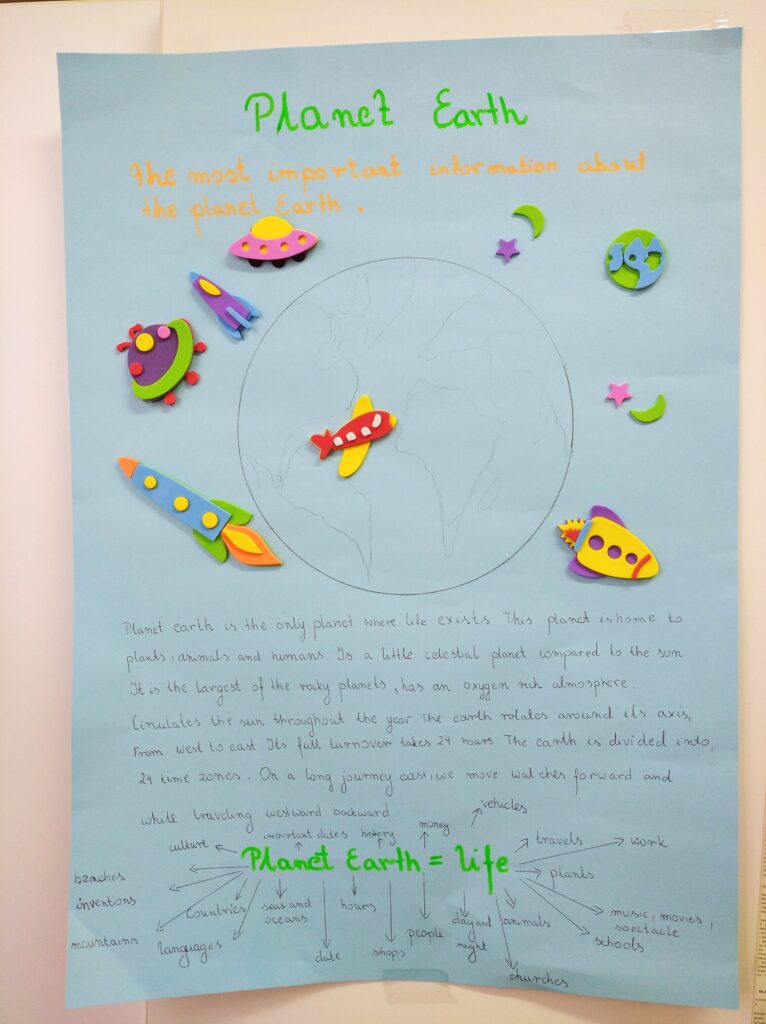 Planet Earth
The most important information about
the planet Earth.
Planet earth is the only planet where life exists This planet is home to
plants, animals and humans Is a little celestial planet compared to the sun.
It is the largest of the rocky planets, has an oxygen rich atmosphere.
Circulates the sun throughout the year The earth rotates around its axis,
From west to east Its full turnover takes 24 hours The earth is divided into,
24 time zones. On a long journey east, we move watches forward and
while traveling westward backward
vehicles
money
important dates history
culture
travels
work
Planet Earth = life
beaches
plants
inventions
countries
seas and
oceans
hours
music, movies,
spectacle
day and
night
animals
people
mountains
languages
schools
date
shops
churches